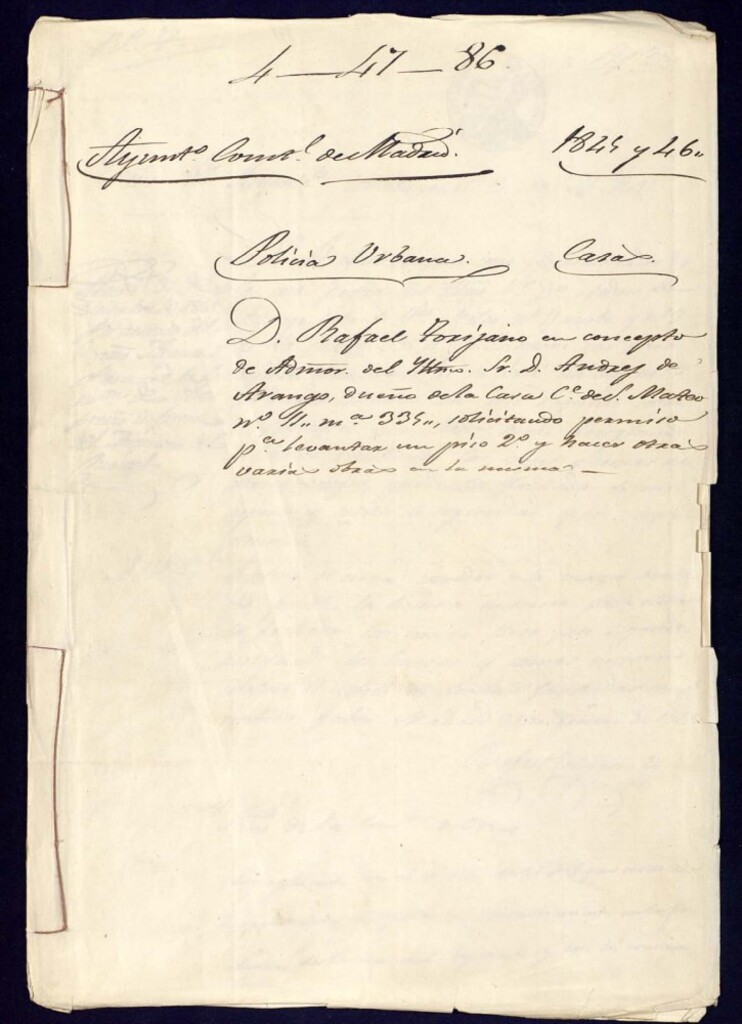 4 - 47 - 86
Ayunto. Const.l de Madrid. 1845 y 46..
Policia Urbana. Casas.
D. Rafael Torijano en concepto
de Admor. del Yllmo. Sr. D. Andres de
Arango, dueño de la Casa C.e de S. Mateo
n.o 11.. m.a 335.., solicitando permiso
p.a levantar un piso 2.o y hacer otras
varias obras en la misma. -